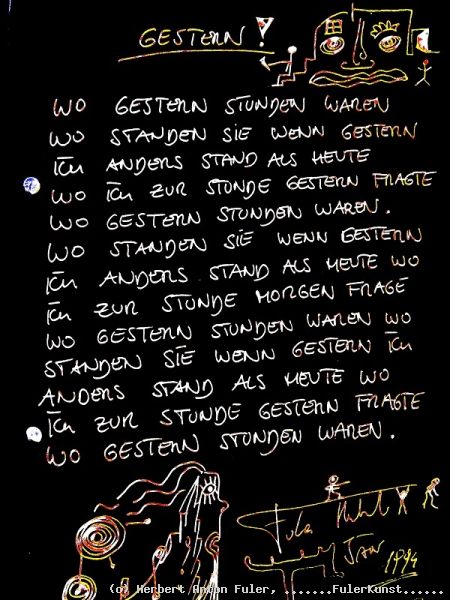 GESTERN!
WO GESTERN STUNDEN WAREN
WO STANDEN SIE WENN GESTERN
ICH ANDERS STAND ALS HEUTE
WO ICH ZUR STUNDE GESTERN FRAGTE
WO GESTERN STUNDEN WAREN.
WO STANDEN SIE WENN GESTERN
ICH ANDERS STAND ALS HEUTE WO
ICH ZUR STUNDE MORGEN FRAGE
WO GESTERN STUNDEN WAREN WO
STANDEN SIE WENN GESTERN ICH
ANDERS STAND ALS HEUTE WO
ICH ZUR STUNDE GESTERN FRAGTE
WO GESTERN STUNDEN WAREN.
JAN 1994
(c) Herbert Anton Fuler, .......FulerKunst......